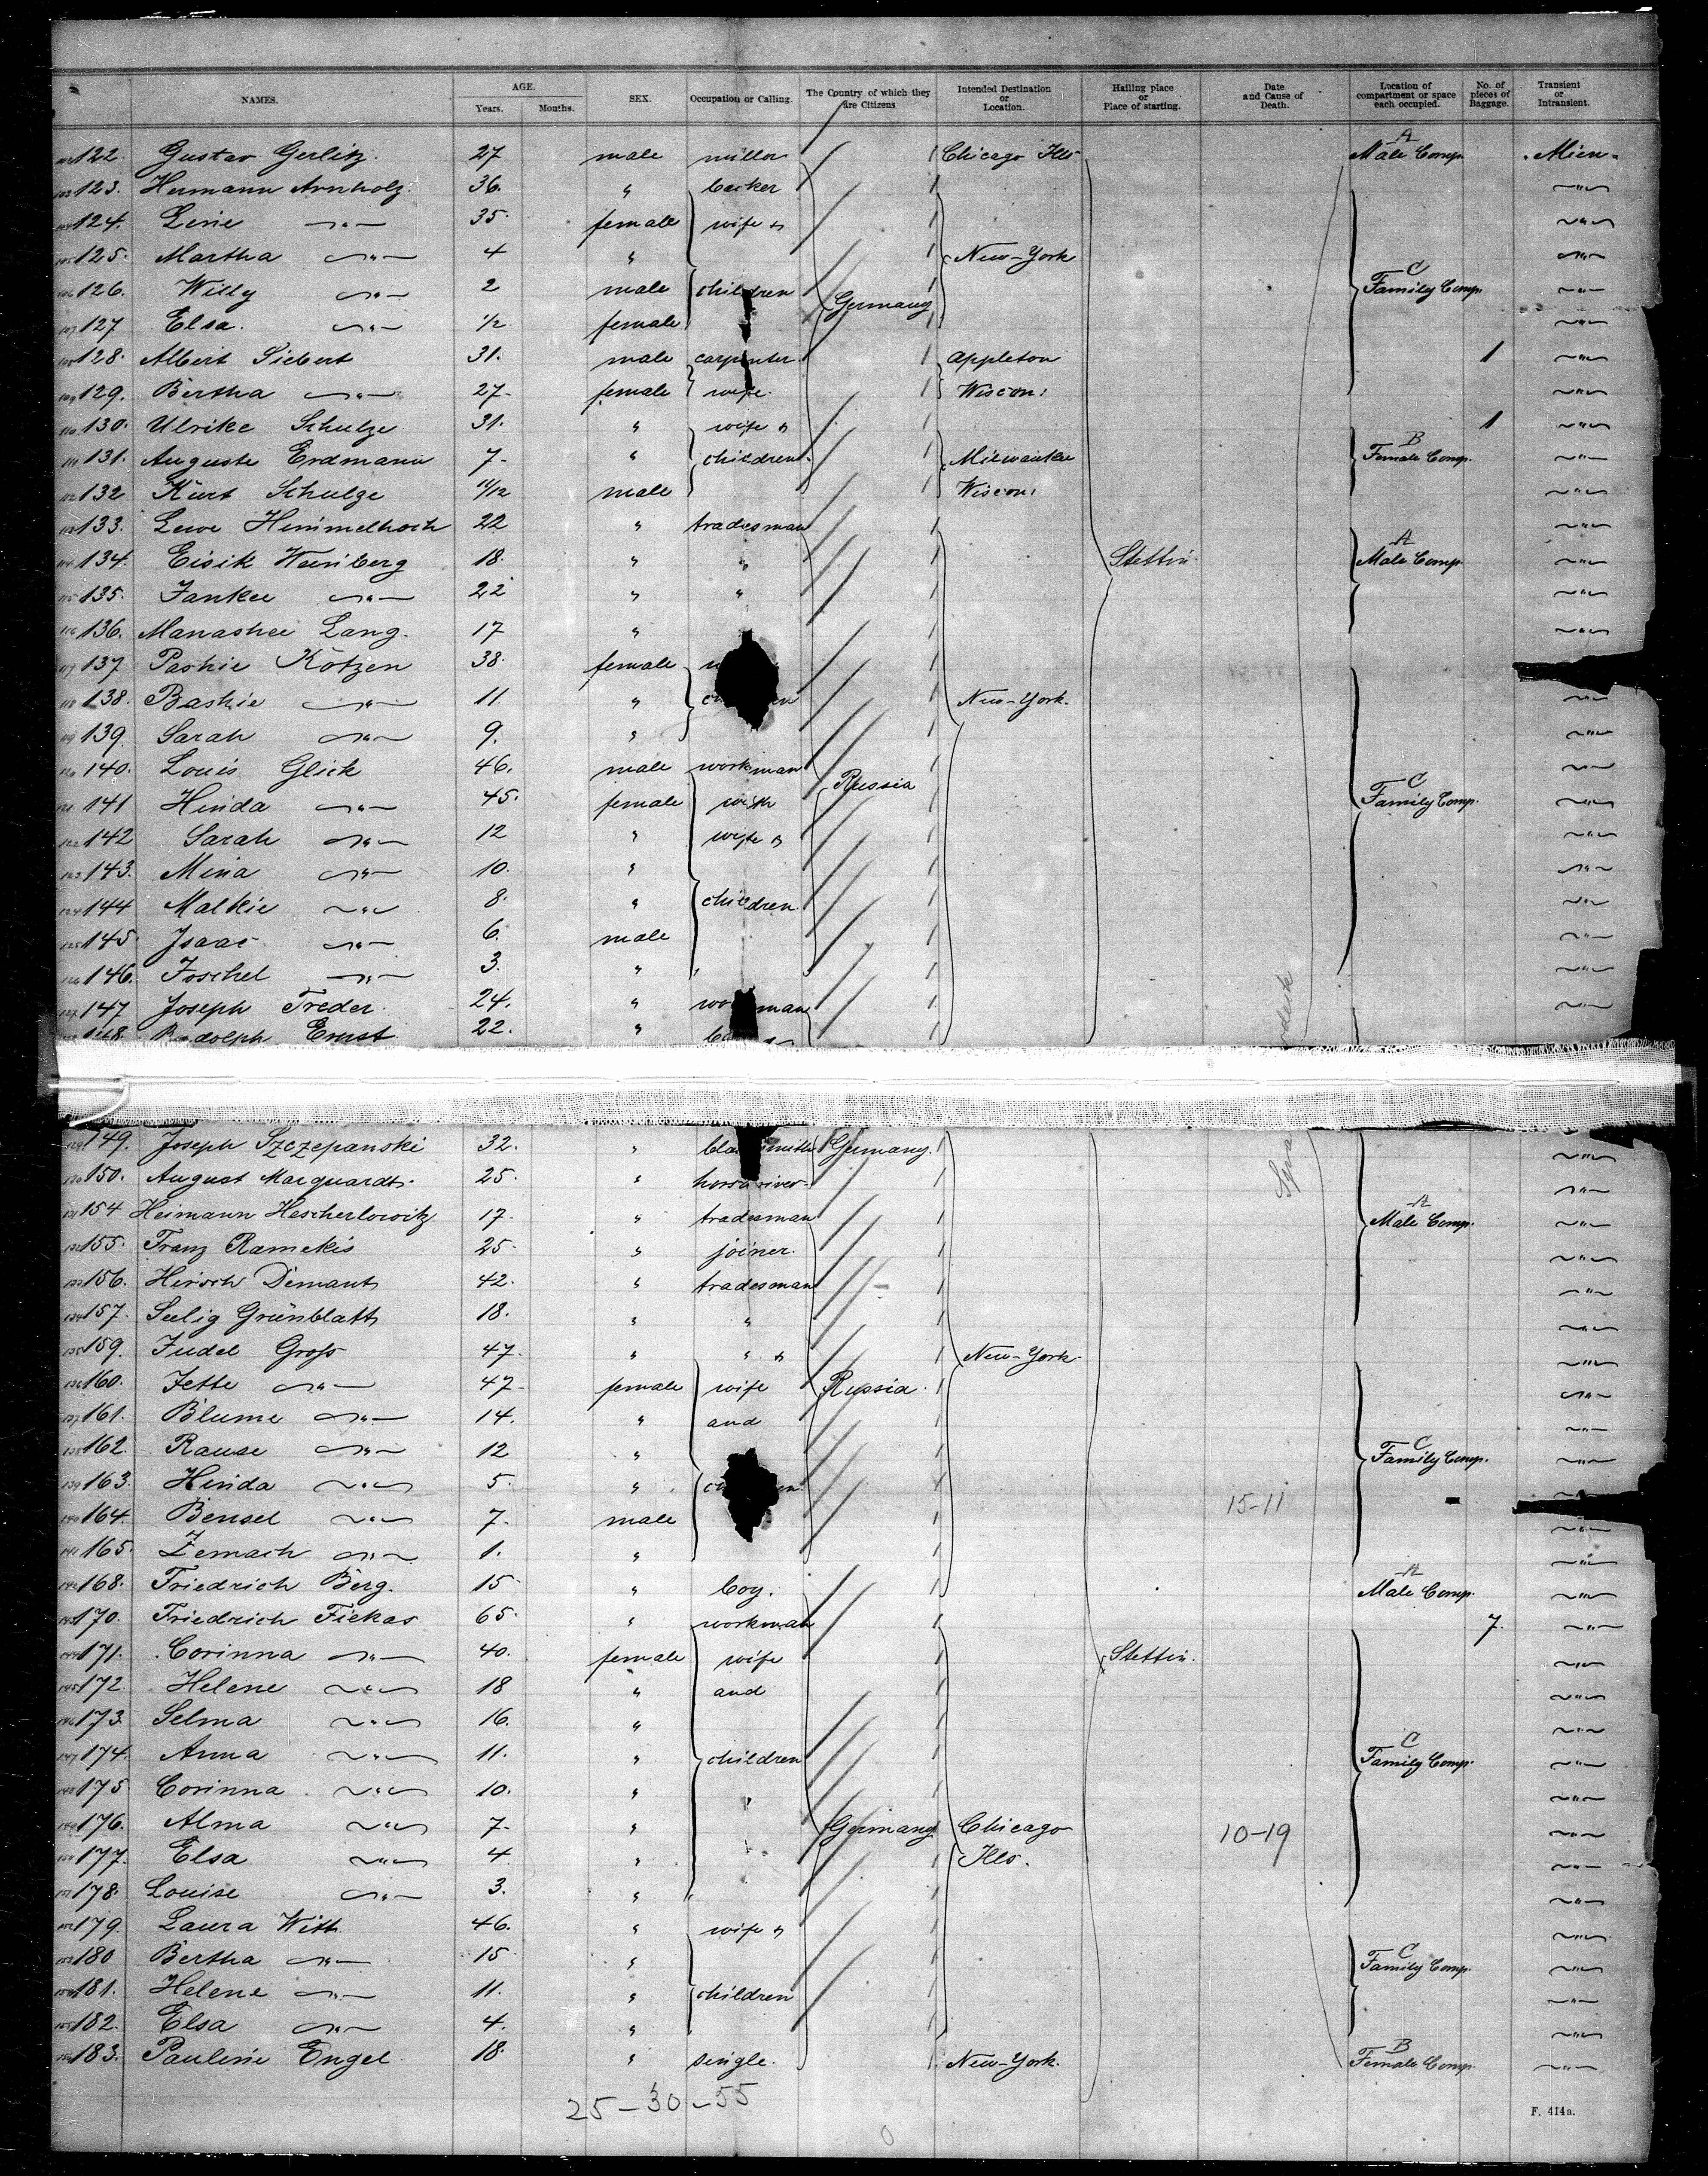 NAMES. AGE. Years. Months. SEX. Occupation or Calling. The Country of which they are Citizens Intended Destination or Location. Hailing place or Place of starting. Date and Cause of Death. Location of compartment or space each occupied. No. of pieces of Baggage. Transient or Intransient.
122. Gustav Gerlitz. 27 male miller Chicago Ills A Male Comp.
123. Hermann Arnholz. 36. " becker
124. Line " 35. female wife &
125. Martha " 4 " New-York
126. Willy " 2 male children Germany C Family Comp.
127 Elsa. " 1/2 female
128. Albert Siebert 31. male carpenter Appleton 1
129. Bertha " 27- female wife. Wiscon:
130. Ulrike Schulze 31. " wife & 1
131. Auguste Erdmann 7- " children Milwaukee B Female Comp.
132 Kurt Schulze 11/12 male Wiscon:
133. Lewe Himmelhoch 22 " tradesman
134. Eisik Weinberg 18. " " Stettin. A Male Comp.
135. Jankee " 22 " "
136. Manashee Lang. 17 "
137 Pashie Kotzen 38. female
138. Bashie " 11 " New-York.
139. Sarah " 9. "
140. Louis Glick 46. male workman Russia
141 Hinda " 45. female C Family Comp.
142 Sarah " 12 " wife &
143. Mina " 10. "
144 Malkie " 8. " children
145. Isaac " 6. male
146. Joschel " 3. "
147 Joseph Treder. 24. " workman
148. Rudolph Ernst. 22. "
149. Joseph Szczepanski 32. " blacksmith Germany.
150. August Marquardt. 25. "
154 Heimann Hescherlowitz 17. " tradesman A Male Comp.
155. Franz Ramekis 25. " joiner.
156. Hirsch Demant 42. " tradesman
157. Selig Grünblatt 18. " "
159. Judel Gross 47. " " & New-York
160. Jette " 47- female wife Russia.
161. Blume " 14. " and
162. Rause " 12 " C Family Comp.
163. Hinda " 5. " children 15-11
164. Bensel " 7. male
165. Zemach " 1. "
168. Friedrich Berg. 15 " boy. A Male Comp.
170. Friedrich Fiekas 65. " workman 7.
171. Corinna " 40. female wife Stettin.
172. Helene " 18 " and
173. Selma " 16. "
174. Anna " 11. " children C Family Comp.
175. Corinna " 10. "
176. Alma " 7- " Germany Chicago 10-19
177. Elsa " 4 " Ills.
178. Louise " 3. "
179. Laura Witt 46. " wife &
180 Bertha " 15 " C Family Comp.
181. Helene " 11. " children
182. Elsa " 4. "
183. Pauline Engel 18. " single. New-York. B Female Comp.
25-30-55
F. 414a.